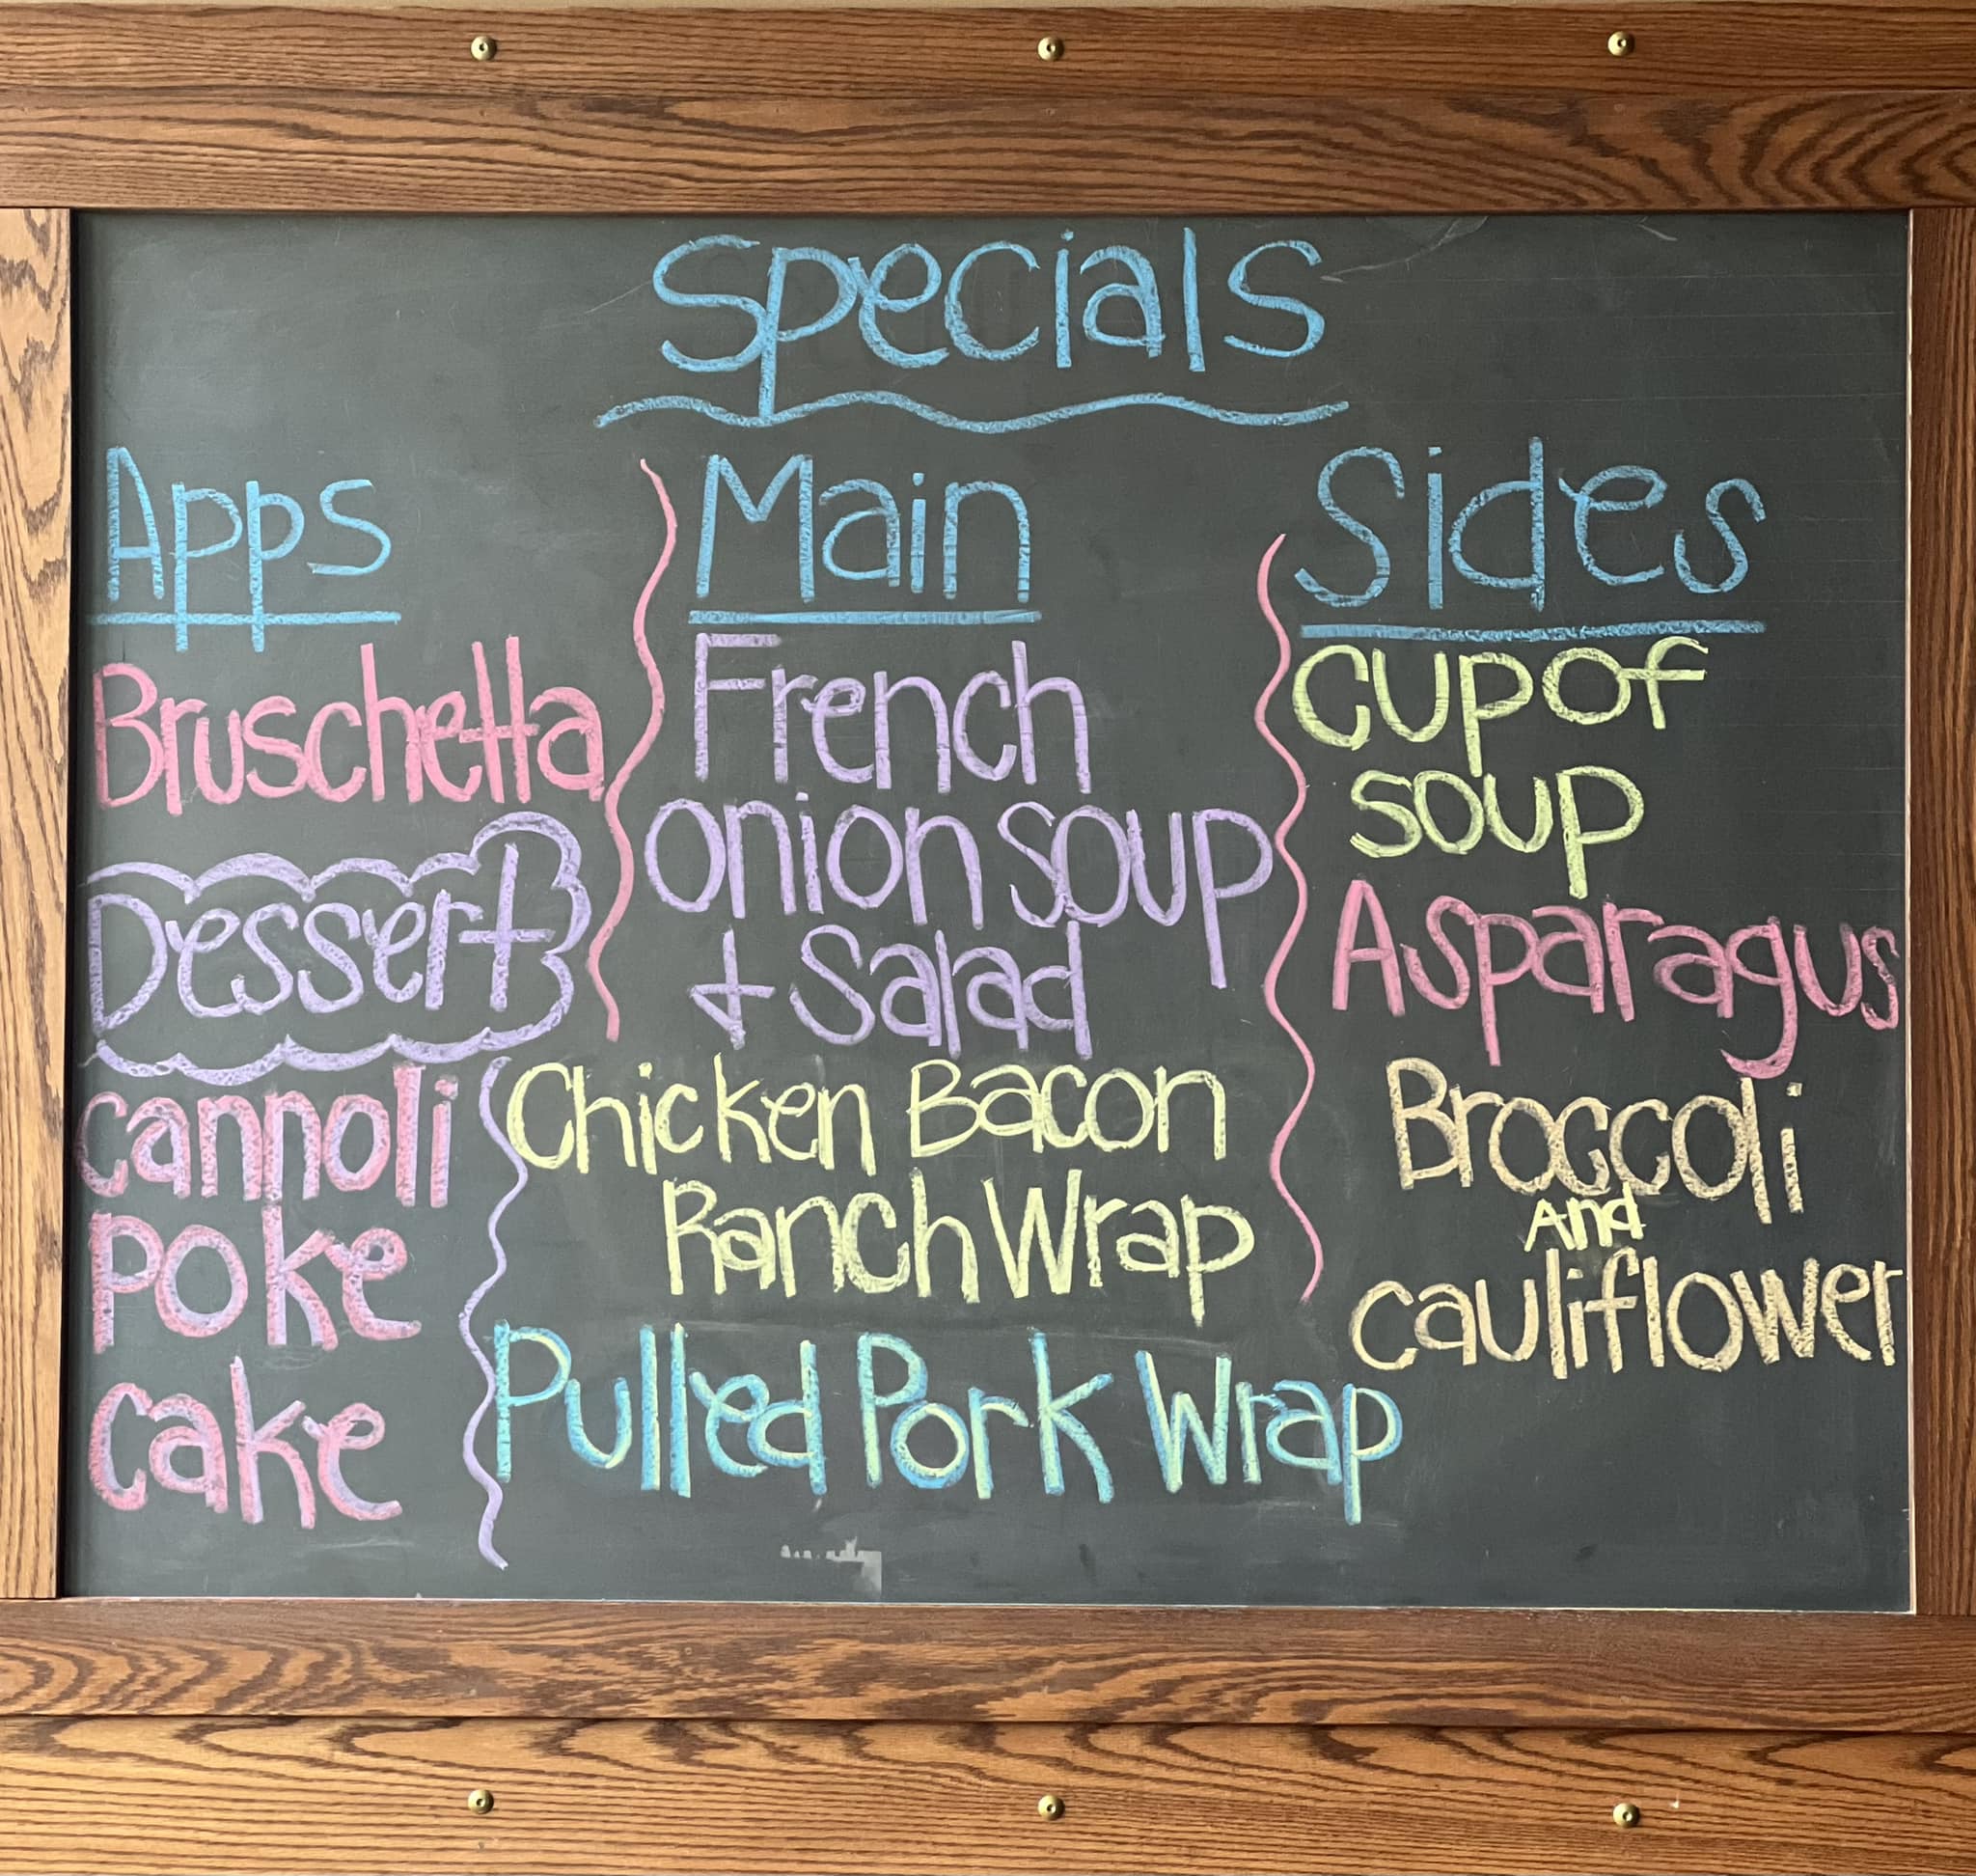 Specials
Apps
Bruschetta
Dessert
cannoli
poke
cake
Main
French
onion soup
+ Salad
Chicken Bacon
Ranch Wrap
Pulled Pork Wrap
Sides
cup of
soup
Asparagus
Broccoli
And
cauliflower